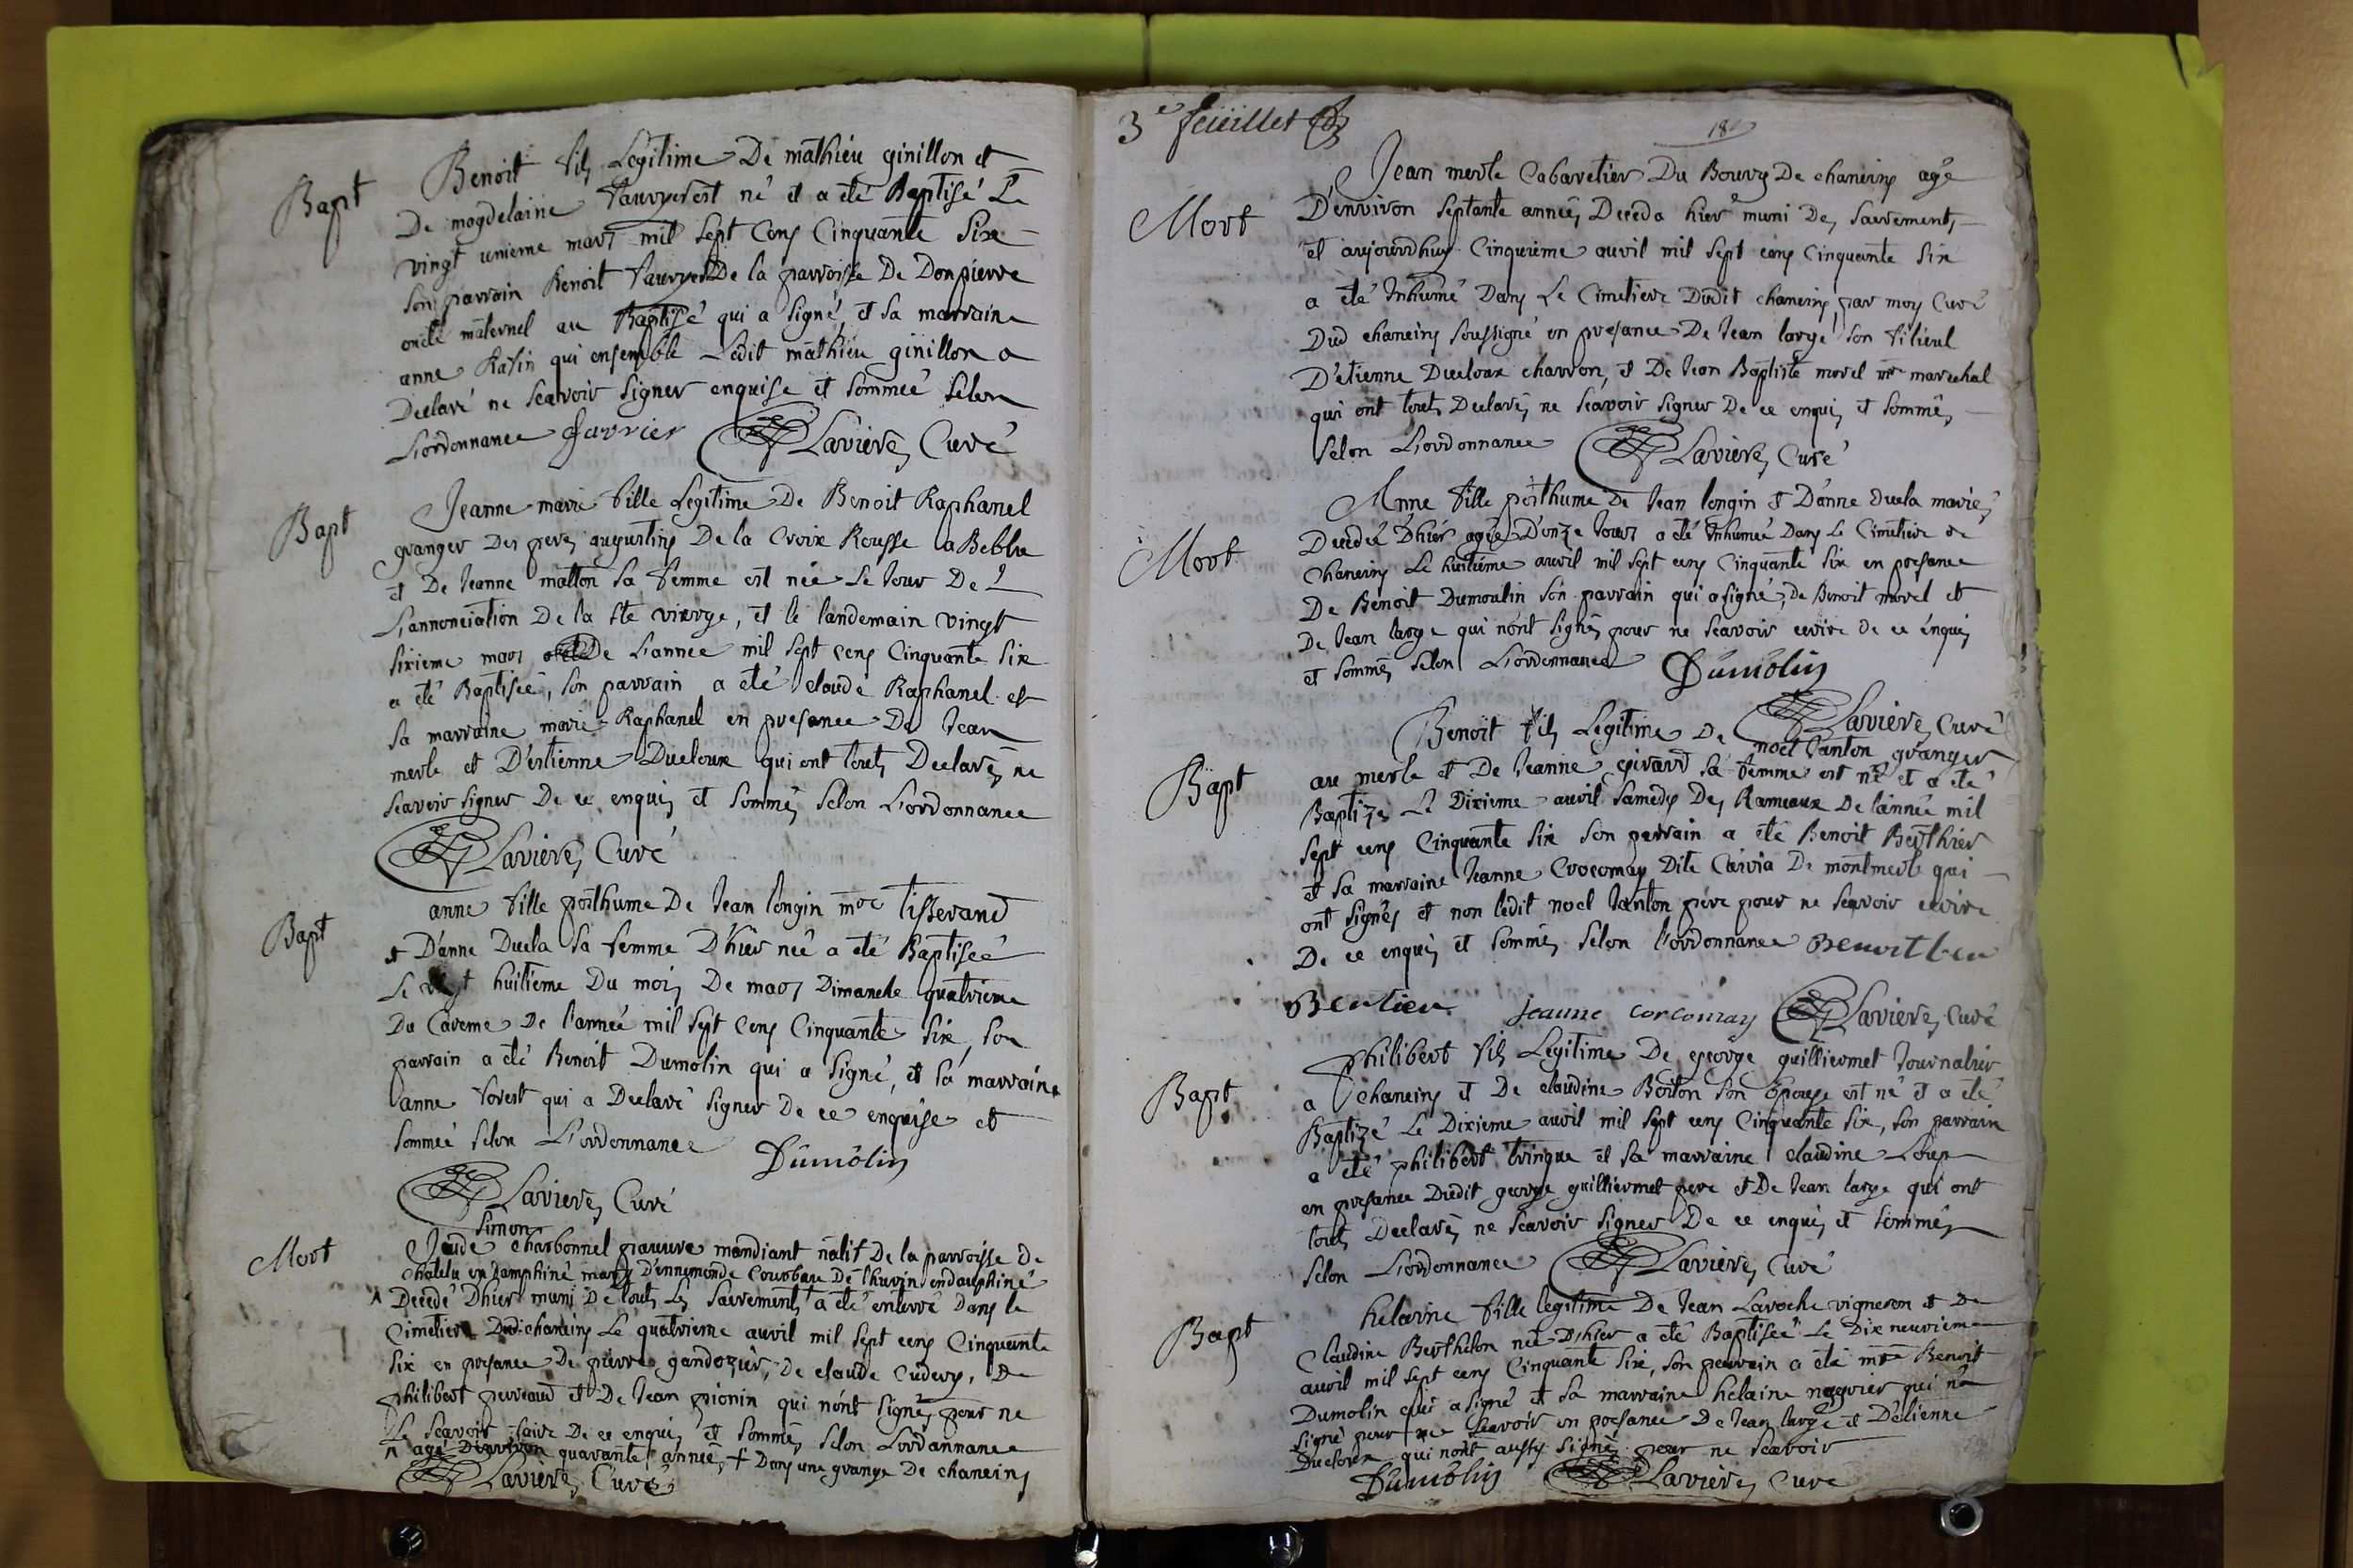 Bapt
Benoit fils Legitime De mathieu ginillon et
De magdelaine favryer est né et a été Baptisé Le
vingt unieme mars mil sept Cens Cinquante Six
son parrain Benoit favryer De la parroisse De Dompierre
oncle maternel au Baptisé qui a signé et sa marraine
anne Ratin qui ensemble Ledit mathieu ginillon a
Declaré ne scavoir signer enquise et sommée selon
L'ordonnance favrier Lavieres Curé
Bapt
Jeanne marie fille Legitime De Benoit Raphanel
granger Des peres augustins De la Croix Rousse a
et De Jeanne matton sa femme est née Le Jour De
L'annonciation De la ste vierge, et le landemain vingt
sixieme mars De L'année mil sept cens Cinquante six
a été Baptisée, son parrain a été claude Raphanel et
sa marraine marie Raphanel en presance De Jean
merle et D'estienne Ducloux qui ont touts Declarés ne
scavoir signer De ce enquis et sommés selon L'ordonnance
Lavieres Curé
Bapt
anne fille posthume De Jean longin mre tisserand
et D'anne Ducla sa femme D'hier née a été Baptisée
Le vingt huitieme Du mois De mars Dimanche quatrieme
Du Careme De l'année mil sept Cens Cinquante six, son
parrain a été Benoit Dumolin qui a signé, et sa marraine
anne forest qui a Declaré signer De ce enquise et
sommée selon L'ordonnance Dumolin
Lavieres Curé
Mort
Simon
charbonnel pauvre mandiant natif De la parroisse de
en marry D'ennemonde en dauphiné
Decedé D'hier muni De touts Les sacrements a été enterré Dans le
Cimetiere Dud. chaneins Le quatrieme avril mil sept cens Cinquante
six en presance De pierre gandozier, De claude Cudery, De
philibert perreaud et De Jean pionin qui n'ont signés pour ne
Le scavoir faire De ce enquis et sommés selon L'ordonnance
agé D'environ quarante années + Dans une grange De chaneins
Lavieres Curé
3e feüillet
18
Mort
Jean merle Cabaretier Du Bourg De chaneins agé
D'environ septante années Deceda hier muni Des sacrements,
et aujourdhuy Cinquieme avril mil sept cens Cinquante six
a été Inhumé Dans Le Cimetiere Dudit chaneins, par moy Curé
Dud chaneins soussigné en presance De Jean large son filieul
D'etienne Ducloux charron, et De Jean Baptiste morel mre marechal
qui ont touts Declarés ne scavoir signer De ce enquis et sommés
selon L'ordonnance Lavieres Curé
Mort
Anne fille posthume De Jean longin et D'anne Ducla mariés
Decedée D'hier agée D'onze Jours a été Inhumée Dans Le Cimetiere de
Chaneins Le huitiéme avril mil sept cens Cinquante six en presance
De Benoit Dumoulin son parrain qui a signé, De Benoit morel et
De Jean large qui n'ont signés pour ne scavoir ecrire de ce enquis
et sommés selon L'ordonnance Dumolin
Lavieres Curé
Bapt
Benoit fils Legitime De noel Janton granger
au merle et De Jeanne girard sa femme est né et a été
Baptize Le Dixieme avril samedy Des Rameaux De l'année mil
sept cens Cinquante six son parrain a été Benoit Berthier
et sa marraine Jeanne Crocomay Dite De montmerle qui
ont signés et non ledit noel Janton pére pour ne scavoir ecrire
De ce enquis et sommés selon l'ordonnance Benoit ber
Bertier Jeanne corcomay Lavieres Curé
Bapt
Philibert fils Legitime De george guilliermet Journalier
a chaneins et De claudine Boiton son Epouse est né et a été
Baptizé Le Dixieme avril mil sept cens Cinquante six, son parrain
a été philibert tringue et sa marraine claudine Loup
en presance Dudit george guilliermet pere et De Jean large qui ont
touts Declarés ne scavoir signer De ce enquis et sommés
selon L'ordonnance Lavieres Curé
Bapt
helaine fille legitime De Jean Laroche vigneron et De
Claudine Berthelon née D'hier a été Baptisée Le Dix neuvieme
avril mil sept cens Cinquante six, son parrain a été mre Benoit
Dumolin qui a signé et sa marraine helaine qui n'a
signé pour ne scavoir en presance De Jean large et D'étienne
Ducloux qui n'ont aussy signés pour ne scavoir
Dumolin Lavieres Curé